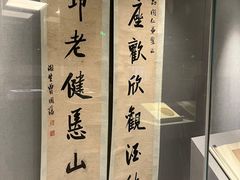 座歡欣觀酒
邛老健憑山
滌生曾國藩